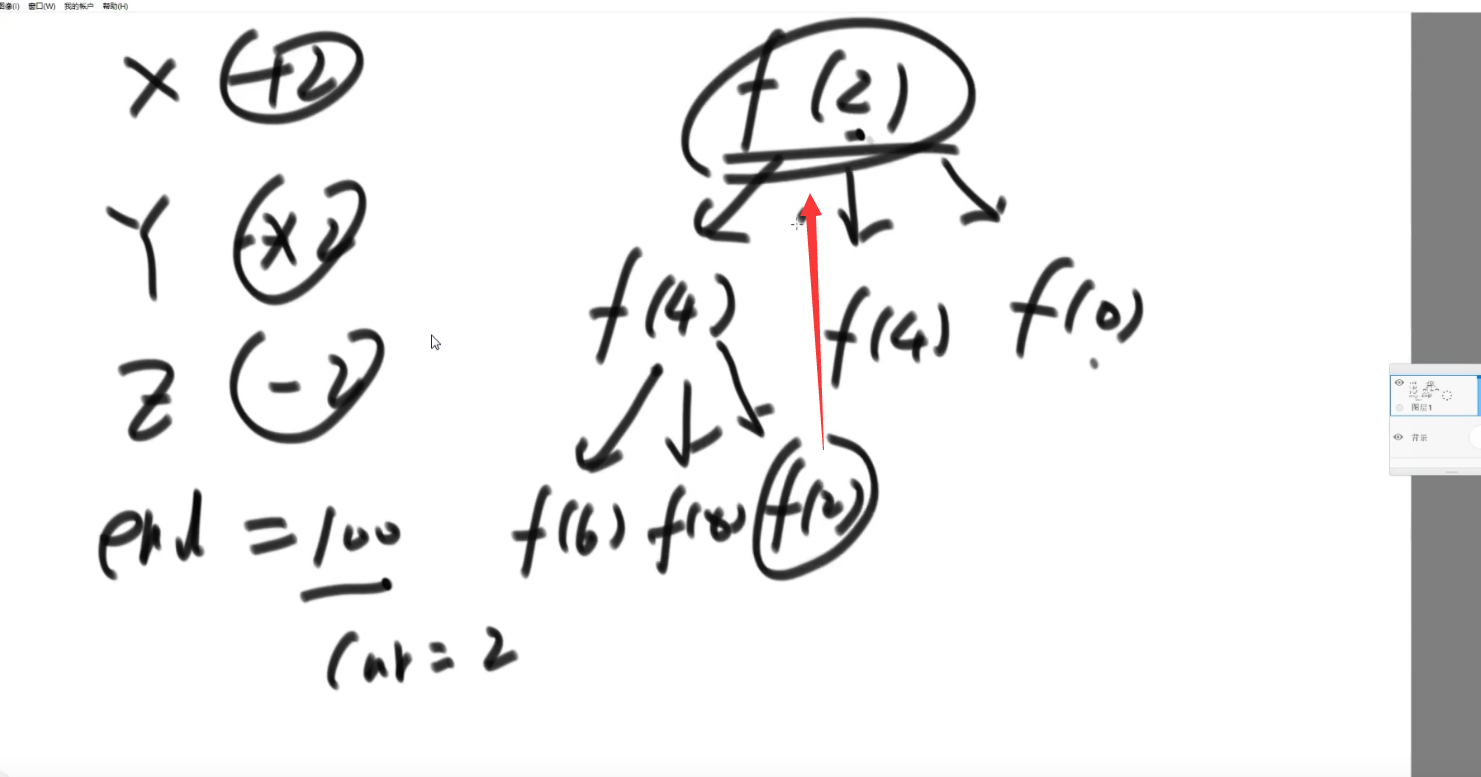 图像(I) 窗口(W) 我的帐户 帮助(H)
X +2
Y ×2
Z -2
end = 100
cur = 2
f(2)
f(4) f(4) f(0)
f(6) f(8) f(2)
图层1
背景